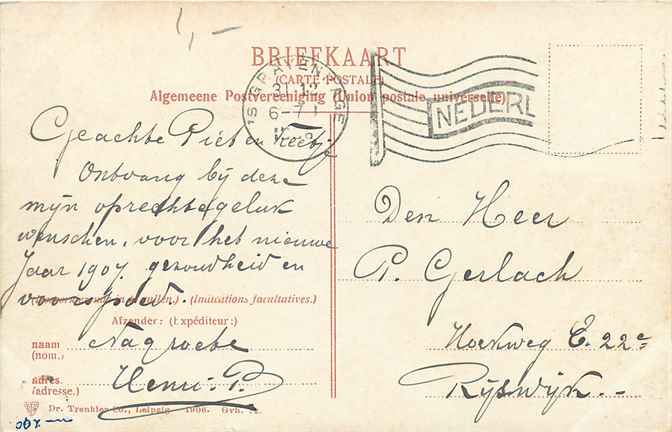 1,-
BRIEFKAART
(CARTE POSTALE)
Algemeene Postvereeniging (Union postale universelle)
'S GRAVENHAGE
6-7
NEDERL
Geachte Piet en Keetje
Ontvang bij deze
mijn oprechte geluk
wenschen, voor het nieuwe
Jaar 1907. gezondheid en
voorspoed.
(Imitations facultatives.)
Afzender: (Expéditeur:)
naam
(nom,)
Henri. P.
adres
(adresse.)
Dr. Trenkler Co., Leipzig. 1906. Gvh.
Den Heer
P. Gerlach
Hoekweg C. 22e
Rijswijk.-